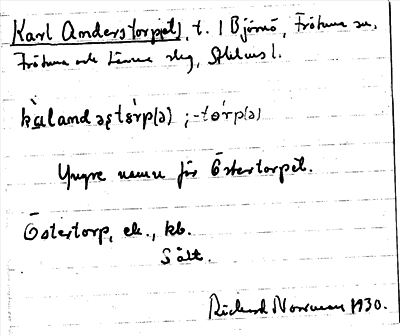 Karl Anderstorp(et), t. 1 Björnö, Frötuna sn,
Frötuna och Länna slg, Sthlms l.
kàlandəʂtórp(ə) ; -tòrp(ə)
Yngre namn för Östertorpet.
Östertorp, ek., kb.
Sält.
Rickard Norrman 1930.